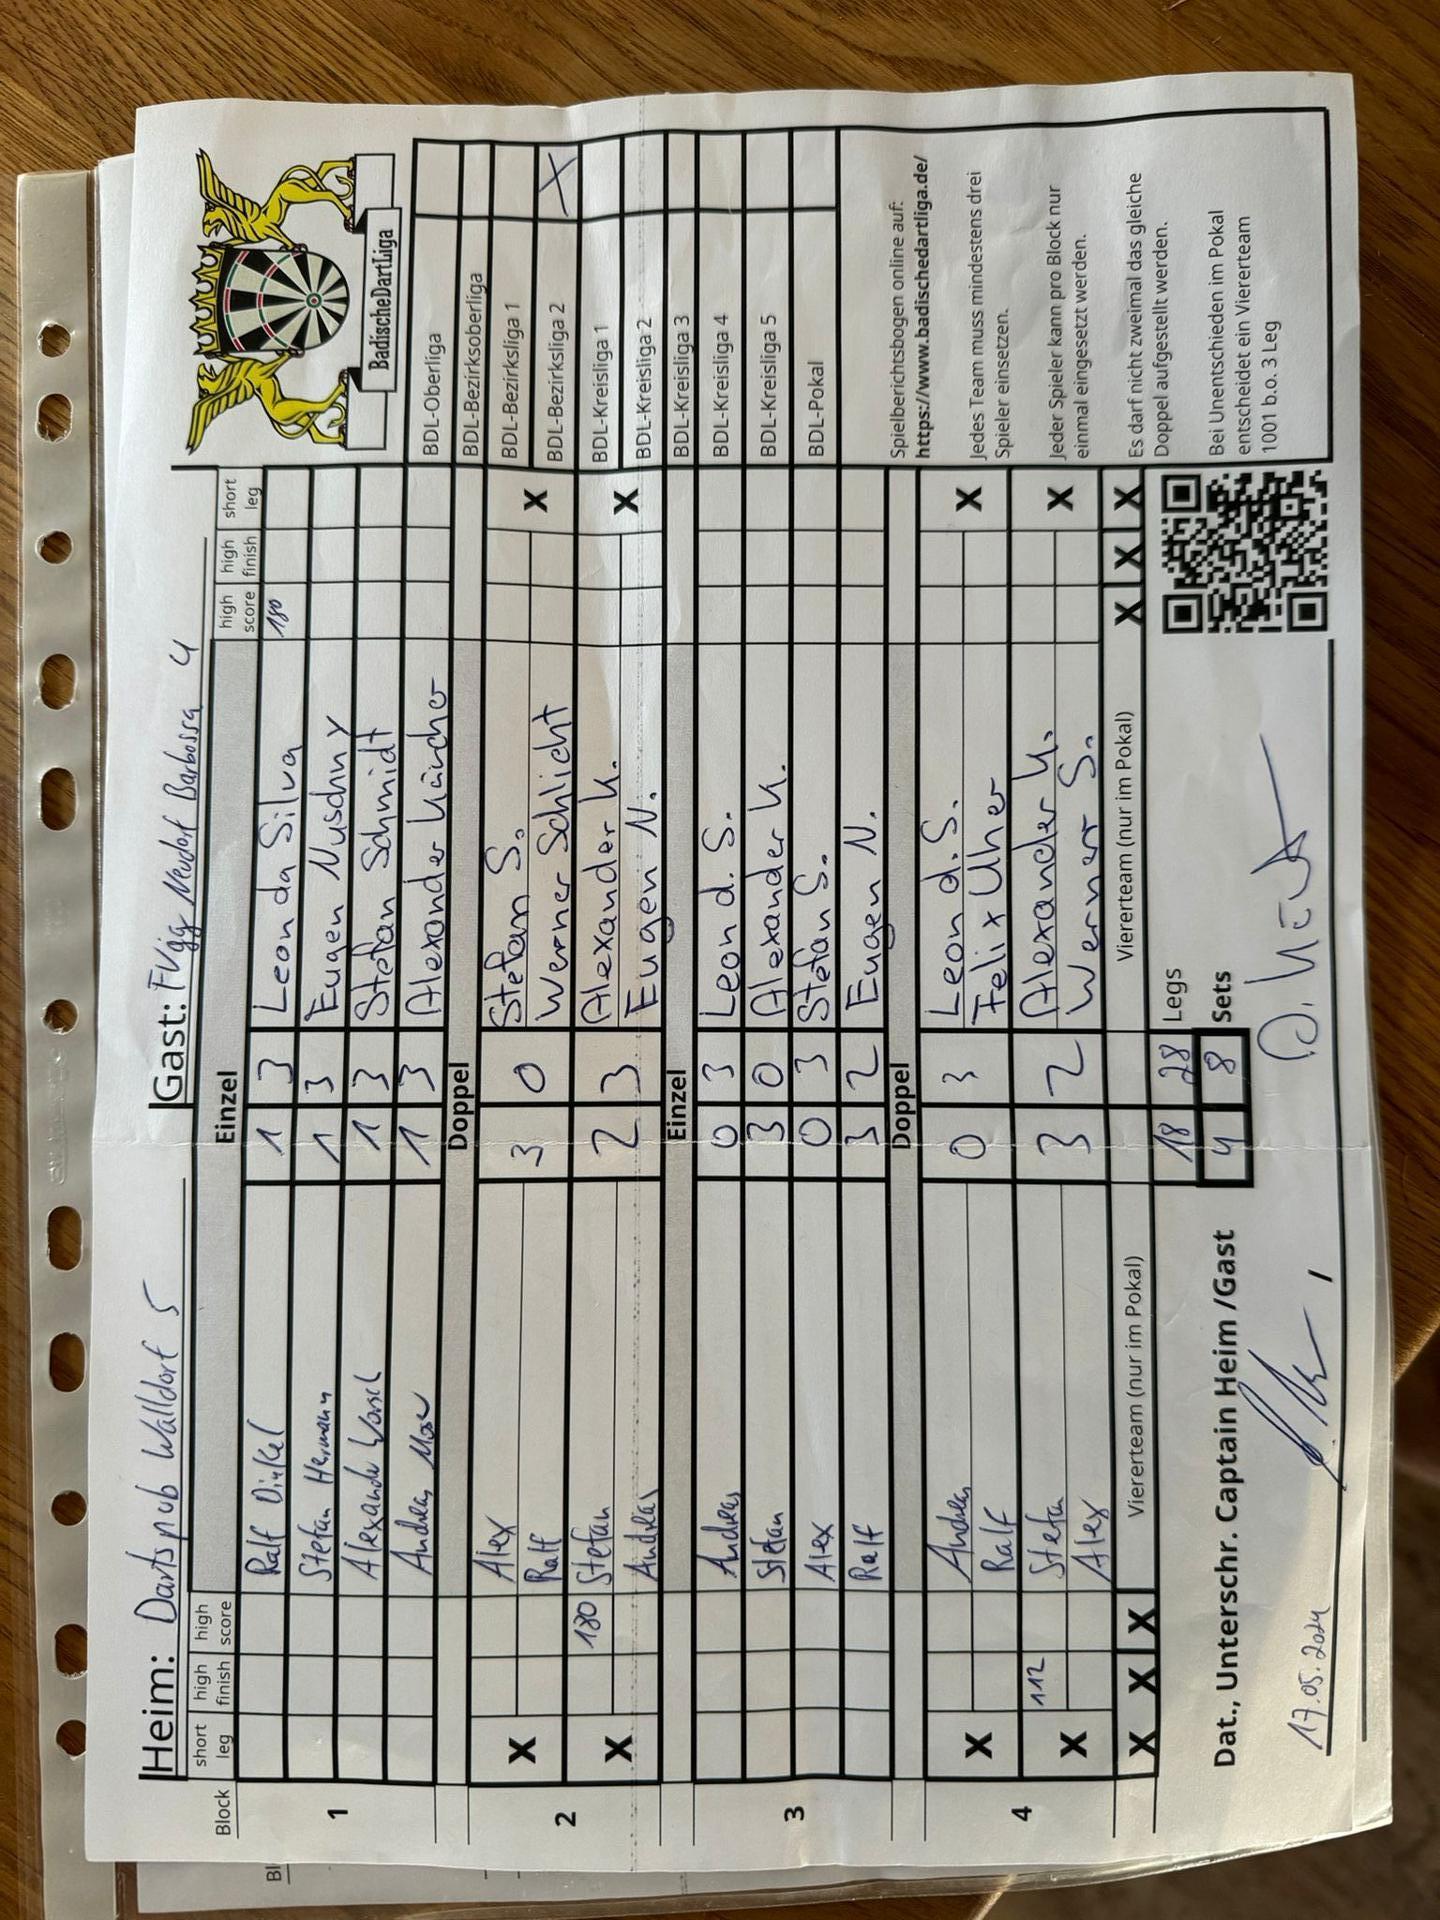 Heim: Dartspub Walldorf 5 Gast: FVgg Neudorf Barbossa 4
BadischeDartLiga
Block short leg high finish high score Einzel high score high finish short leg
1
Ralf Dinkel 1 3 Leon da Silva 180
Stefan Hermann 1 3 Eugen Nuschny
Alexander 1 3 Stefan Schmidt
Andreas 1 3 Alexander
Doppel
2
Alex 3 0 Stefan S.
X Ralf Werner Schlicht X
180 Stefan 2 3 Alexander K.
X Andreas Eugen N. X
Einzel
3
Andreas 0 3 Leon d. S.
Stefan 3 0 Alexander K.
Alex 0 3 Stefan S.
Ralf 3 2 Eugen N.
Doppel
4
Andreas 0 3 Leon d. S.
X Ralf Felix Uher X
112 Stefan 3 2 Alexander K.
X Alex Werner S. X
X X X Viererteam (nur im Pokal) Viererteam (nur im Pokal) X X X
18 28 Legs
Dat., Unterschr. Captain Heim /Gast 4 8 Sets
17.05.2024
BDL-Oberliga
BDL-Bezirksoberliga
BDL-Bezirksliga 1
BDL-Bezirksliga 2 X
BDL-Kreisliga 1
BDL-Kreisliga 2
BDL-Kreisliga 3
BDL-Kreisliga 4
BDL-Kreisliga 5
BDL-Pokal
Spielberichtsbogen online auf:
https://www.badischedartliga.de/
Jedes Team muss mindestens drei
Spieler einsetzen.
Jeder Spieler kann pro Block nur
einmal eingesetzt werden.
Es darf nicht zweimal das gleiche
Doppel aufgestellt werden.
Bei Unentschieden im Pokal
entscheidet ein Viererteam
1001 b.o. 3 Leg